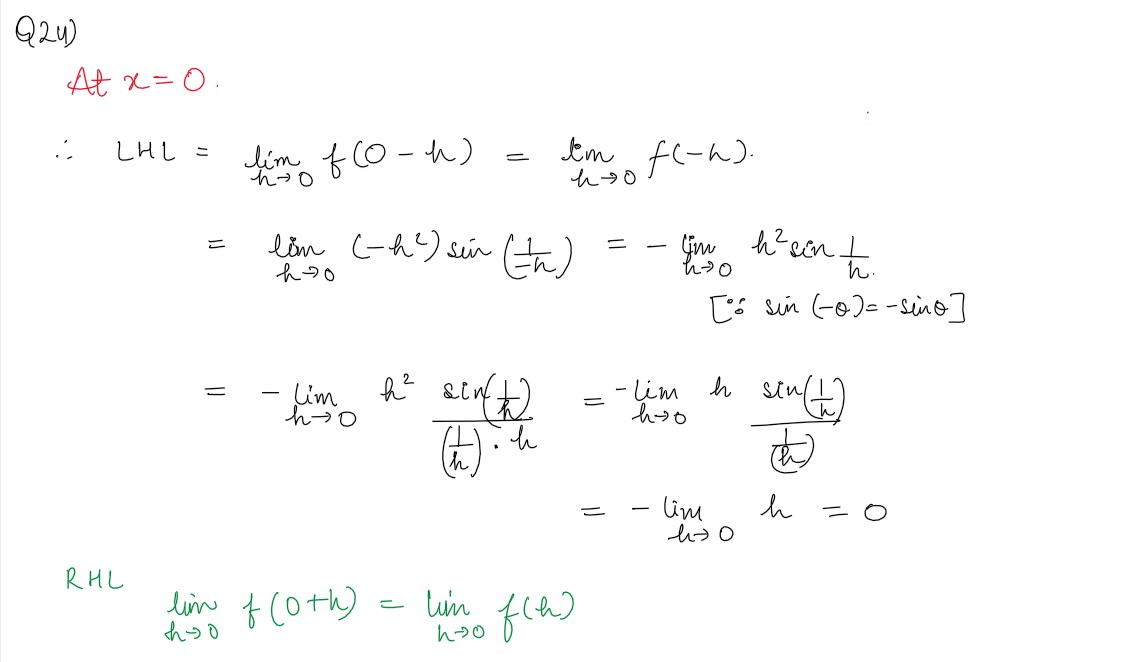 Q24)
At x = 0.
∴ LHL = lim h→0 f(0 - h) = lim h→0 f(-h).
= lim h→0 (-h²) sin (1/-h) = - lim h→0 h² sin 1/h.
[∵ sin (-θ) = -sinθ]
= - lim h→0 h² sin(1/h) / (1/h) · h = - lim h→0 h sin(1/h) / (1/h)
= - lim h→0 h = 0
RHL
lim h→0 f(0+h) = lim h→0 f(h)